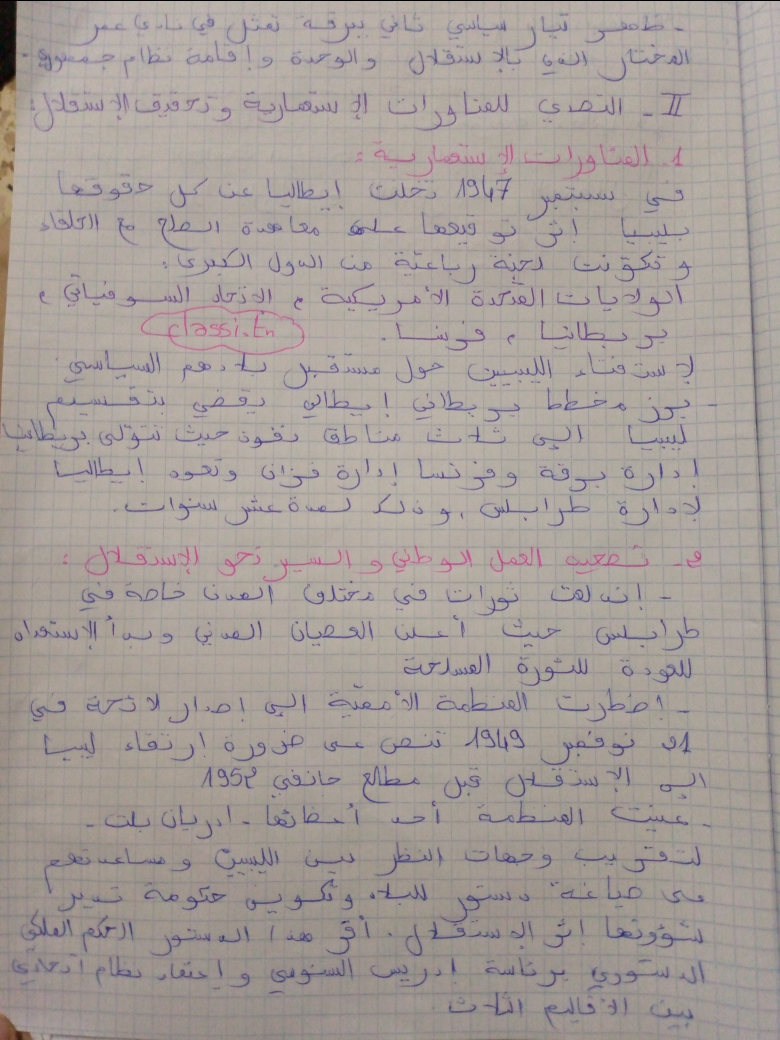 - ظهر تيار سياسي ثاني ببرقة تمثل في نادي عمر
المختار الذي بالإستقلال والوحدة وإقامة نظام جمهوري.
II - التصدي للمناورات الإستعمارية وتحقيق الإستقلال:
1. المناورات الإستعمارية:
في سبتمبر 1947 تخلت إيطاليا عن كل حقوقها
بليبيا اثر توقيعها على معاهدة الصلح مع الحلفاء
وتكونت لجنة رباعية من الدول الكبرى:
الولايات المتحدة الأمريكية، الاتحاد السوفياتي،
بريطانيا، فرنسا.
classi.tn
لإستفتاء الليبيين حول مستقبل بلادهم السياسي.
- برز مخطط بريطاني إيطالي يقضي بتقسيم
ليبيا الى ثلاث مناطق نفوذ حيث تتولى بريطانيا
إدارة برقة وفرنسا إدارة فزان وتعود إيطاليا
لإدارة طرابلس، وذلك لمدة عشر سنوات.
2- تصعيد العمل الوطني والسير نحو الإستقلال:
- إندلعت ثورات في مختلف المدن خاصة في
طرابلس حيث أعلن العصيان المدني وبدأ الإستعداد
للعودة للثورة المسلحة
- إضطرت المنظمة الأممية الى إصدار لائحة في
21 نوفمبر 1949 تنص على ضرورة ارتقاء ليبيا
الى الإستقلال قبل مطلع جانفي 1952
- عينت المنظمة أحد أعضائها - ادريان بلت -
لتقريب وجهات النظر بين الليبيين ومساعدتهم
على صياغة دستور للبلاد وتكوين حكومة تدير
شؤونها اثر الإستقلال. أقر هذا الدستور الحكم الملكي
الدستوري برئاسة إدريس السنوسي وإعتماد نظام اتحادي
بين الأقاليم الثلاث